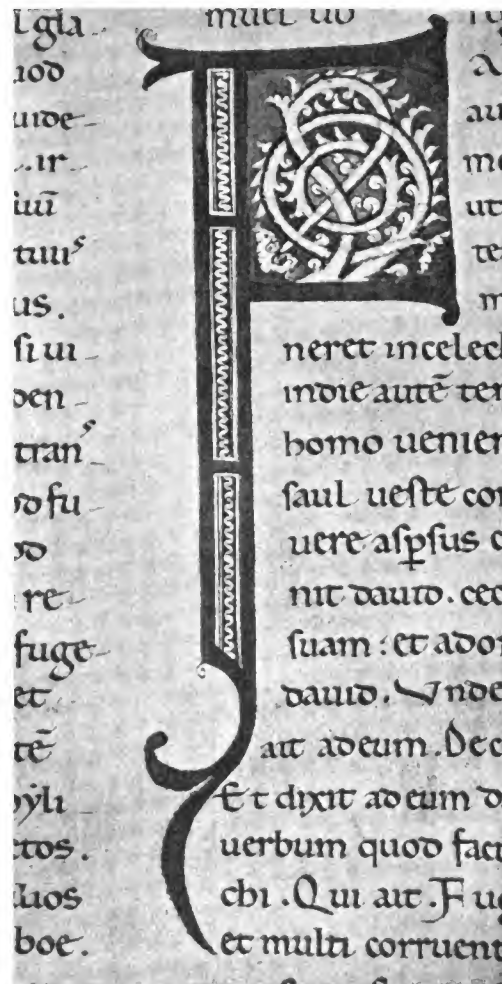 l gla
uod
uide
ir
ſuū
tuuˢ
us.
ſi ui
den
tranˢ
od fu
od
re
fuge
et
tē
ctos.
boe.
muel uo
F
A
au
ut
te
m
neret incelech
indie autē ter
homo uenien
ſaul ueſte con
uere aſpſus c
nit dauid. cec
ſuam : et ador
dauid. Unde
ait ad eum. De c
Et dixit ad eum d
uerbum quod fact
chi. Qui ait. Fu
et multi corruent